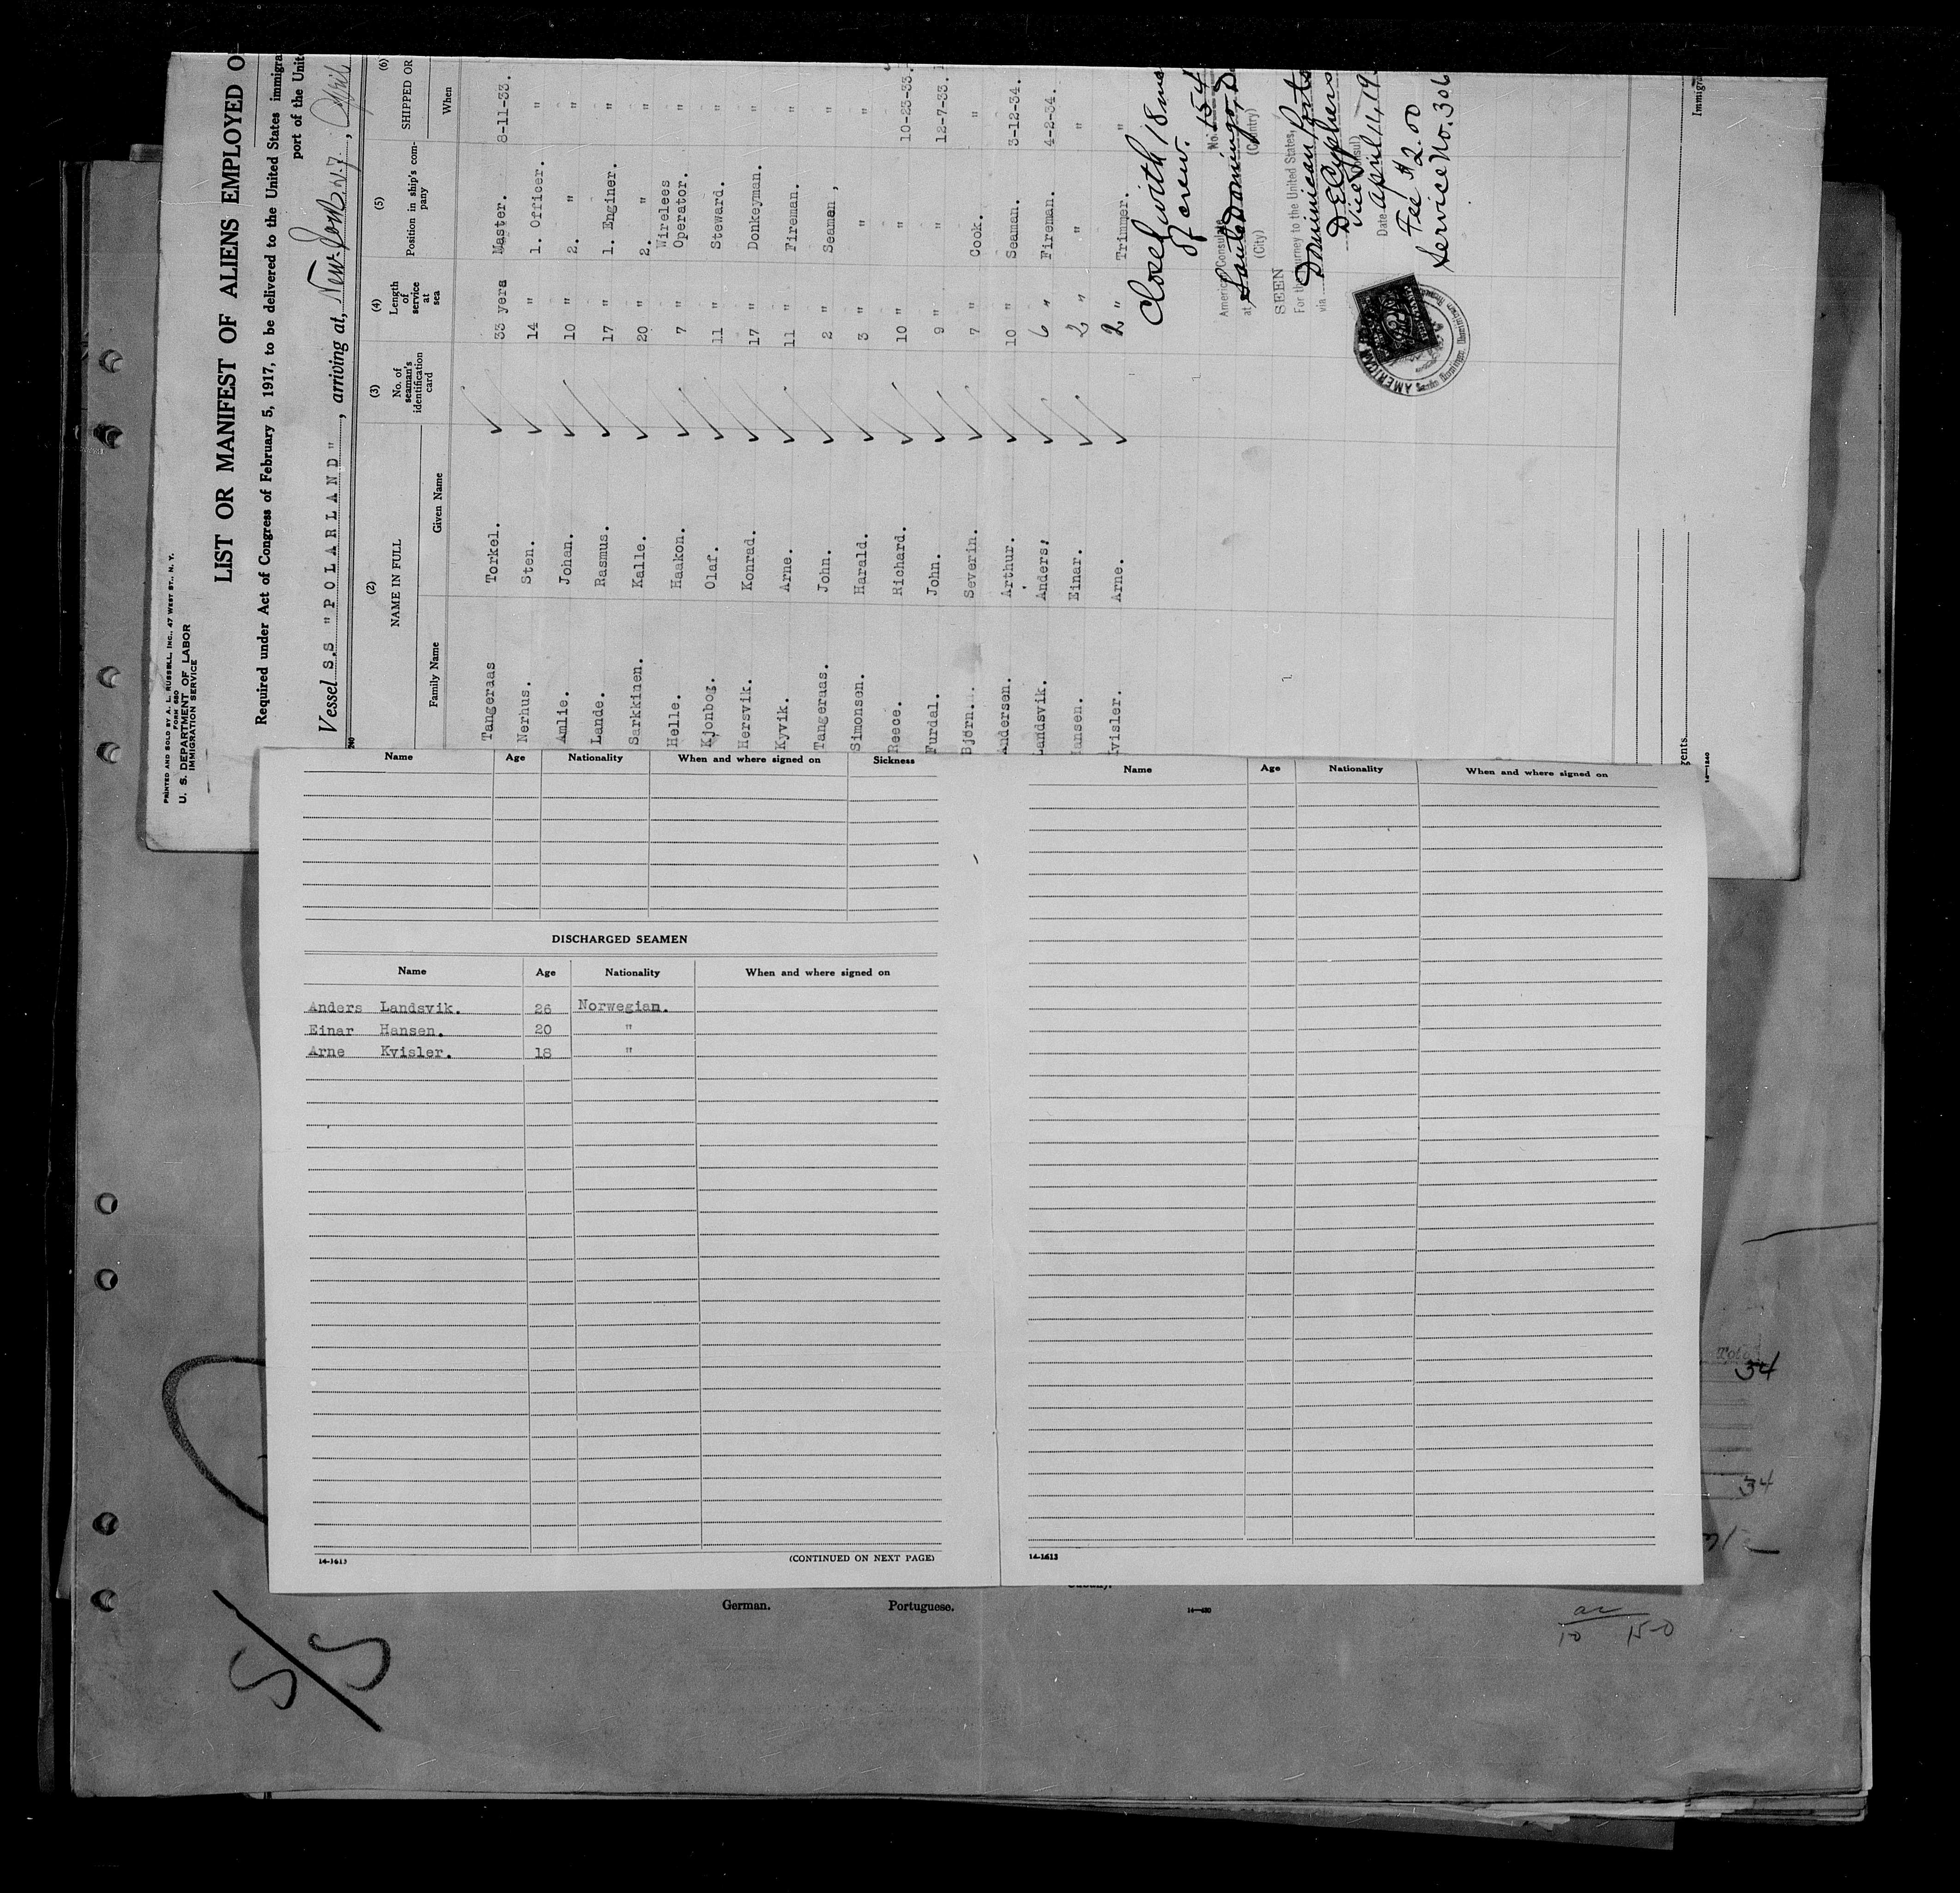 PRINTED AND SOLD BY A. L. RUSSELL, INC., 47 WEST ST., N. Y.
FORM 680
U. S. DEPARTMENT OF LABOR
IMMIGRATION SERVICE
LIST OR MANIFEST OF ALIENS EMPLOYED O
Required under Act of Congress of February 5, 1917, to be delivered to the United States immigra
port of the Unit
Vessel S.S "POLARLAND", arriving at, New-York. N.Y., April
(2) (3) (4) (5) (6)
NAME IN FULL No. of seaman's identification card Length of service at sea Position in ship's company SHIPPED OR
Family Name Given Name When
Tangeraas Torkel. 33 yers Master. 8-11-33.
Nerhus. Sten. 14 " 1. Officer. "
Amlie. Johan. 10 " 2. " "
Lande. Rasmus. 17 " 1. Enginer. "
Sarkkinen. Kalle. 20 " 2. " "
Helle. Haakon. 7 " Wireles Operator. "
Kjonbog. Olaf. 11 " Steward. "
Hersvik. Konrad. 17 " Donkeyman. "
Kyvik. Arne. 11 " Fireman. "
Tangeraas. John. 2 " Seaman, "
Simonsen. Harald. 3 " " "
Reece. Richard. 10 " " 10-23-33.
Furdal. John. 9 " " 12-7-33.
Björn. Severin. 7 " Cook. "
Andersen. Arthur. 10 " Seaman. 3-12-34.
Landsvik. Anders. 6 " Fireman. 4-2-34.
Hansen. Einar. 2 " " "
Kvisler. Arne. 2 " Trimmer. "
Closed with 18 members
of crew.
No. 154
American Consulate
at Santo Domingo, D
(City) (Country)
SEEN
For the journey to the United States,
via Dominican Ports
D E Cyphers
Vice Consul
Date April 14, 19
Fee $2.00
Service No. 306
AMERICAN
Immigra
gents
Name Age Nationality When and where signed on Sickness
DISCHARGED SEAMEN
Name Age Nationality When and where signed on
Anders Landsvik. 26 Norwegian.
Einar Hansen. 20 "
Arne Kvisler. 18 "
14-1613 (CONTINUED ON NEXT PAGE)
Name Age Nationality When and where signed on
14-1613
Total
34
34
German. Portuguese.
S/S
10 150